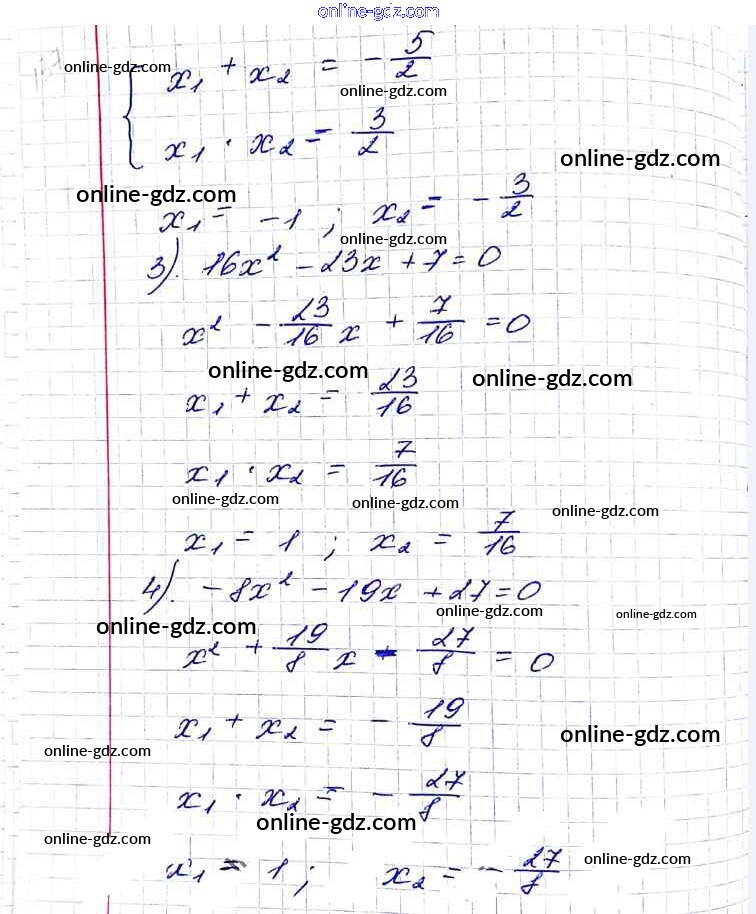 online-gdz.com
online-gdz.com
x₁ + x₂ = -5/2
online-gdz.com
x₁ · x₂ = 3/2
online-gdz.com
online-gdz.com
x₁ = -1 ; x₂ = -3/2
online-gdz.com
3). 16x² - 23x + 7 = 0
x² - 23/16 x + 7/16 = 0
online-gdz.com
online-gdz.com
x₁ + x₂ = 23/16
x₁ · x₂ = 7/16
online-gdz.com
online-gdz.com
online-gdz.com
x₁ = 1 ; x₂ = 7/16
4). -8x² - 19x + 27 = 0
online-gdz.com
online-gdz.com
online-gdz.com
x² + 19/8 x - 27/8 = 0
x₁ + x₂ = -19/8
online-gdz.com
online-gdz.com
x₁ · x₂ = -27/8
online-gdz.com
online-gdz.com
online-gdz.com
x₁ = 1 ; x₂ = -27/8